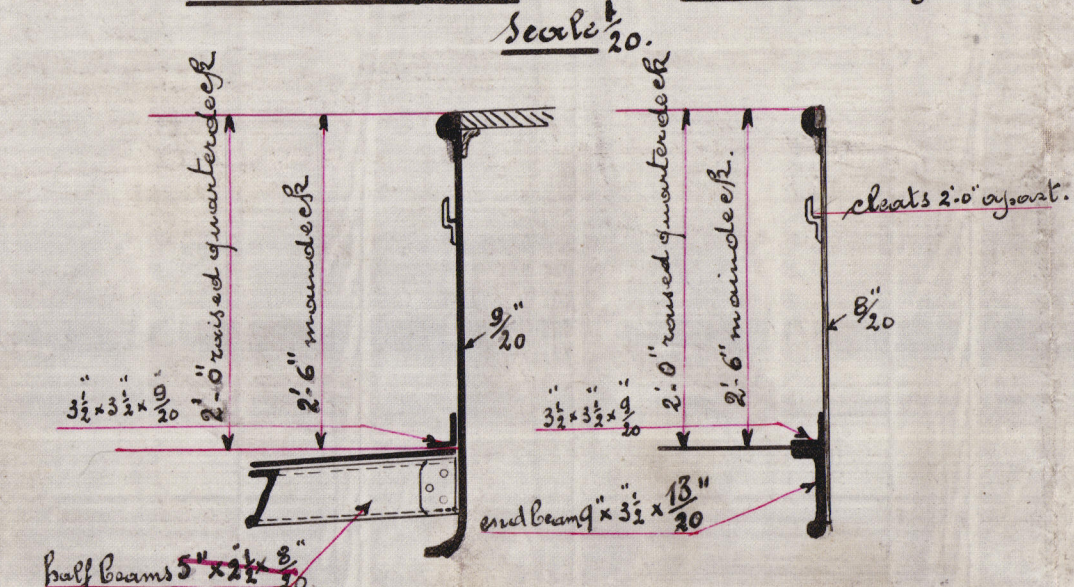 Scale 1/20.
2'-0" raised quarterdeck
2'-6" maindeck
9/20"
3 1/2" x 3 1/2" x 9/20"
half beams 5" x 2 1/2" x 8/20
2'-0" raised quarterdeck
2'-6" maindeck.
cleats 2'-0" apart.
8/20"
3 1/2" x 3 1/2" x 9/20"
end beam 9" x 3 1/2" x 13/20"